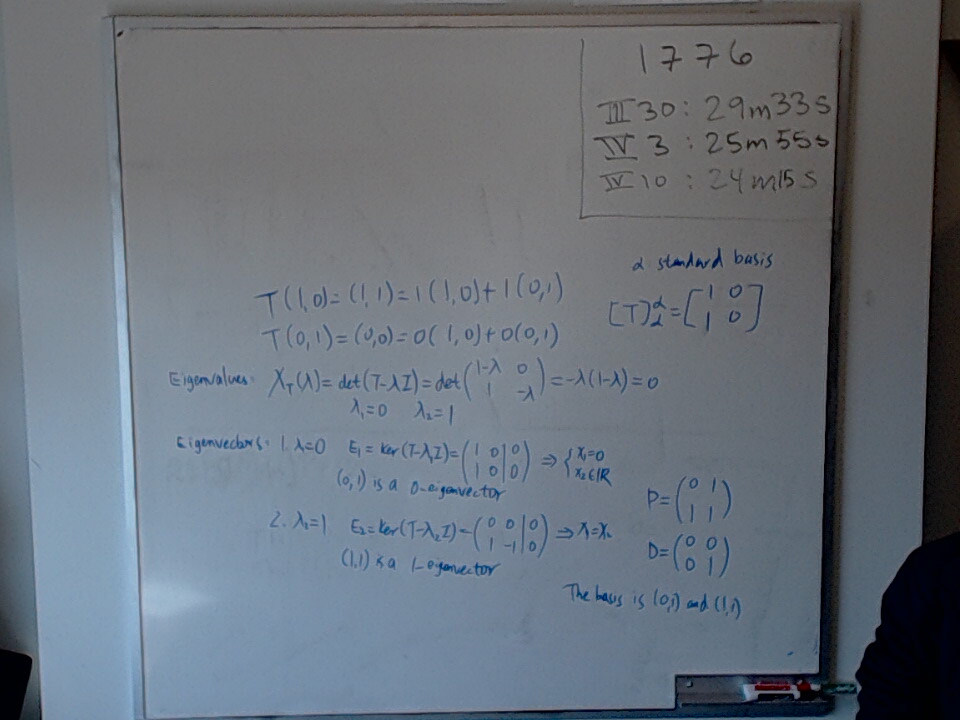 1776
III 30 : 29m33s
IV 3 : 25m55s
IV 10 : 24m15s
α standard basis
T(1,0)=(1,1)=1(1,0)+1(0,1)
T(0,1)=(0,0)=0(1,0)+0(0,1)
[T]^α_α=[1 0
1 0]
Eigenvalues: χ_T(λ)=det(T-λI)=det(1-λ 0
1 -λ)=-λ(1-λ)=0
λ₁=0 λ₂=1
Eigenvectors: 1. λ₁=0 E₁=ker(T-λ₁I)=(1 0|0
1 0|0) ⇒ {x₁=0
x₂∈ℝ
(0,1) is a 0-eigenvector
2. λ₂=1 E₂=ker(T-λ₂I)=(0 0|0
1 -1|0) ⇒ x₁=x₂
(1,1) is a 1-eigenvector
P=(0 1
1 1)
D=(0 0
0 1)
The basis is (0,1) and (1,1)